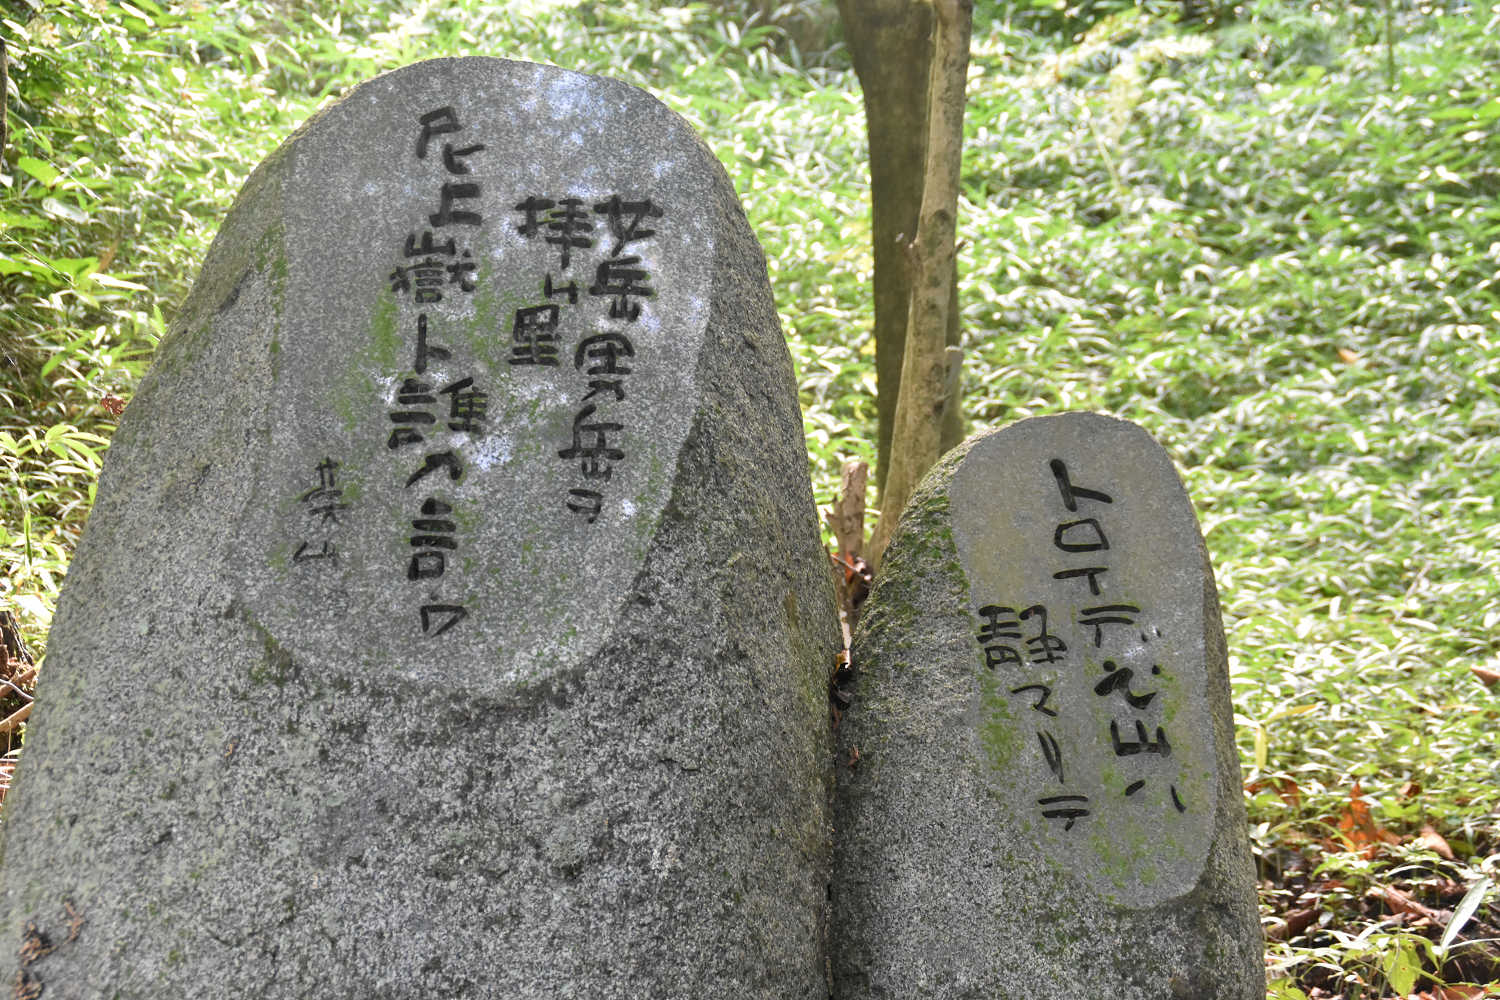 トロイデ火山ハ
静マリテ
女岳男岳ヲ
拝ム里
尾上嶽ト誰カ言ワ
英山